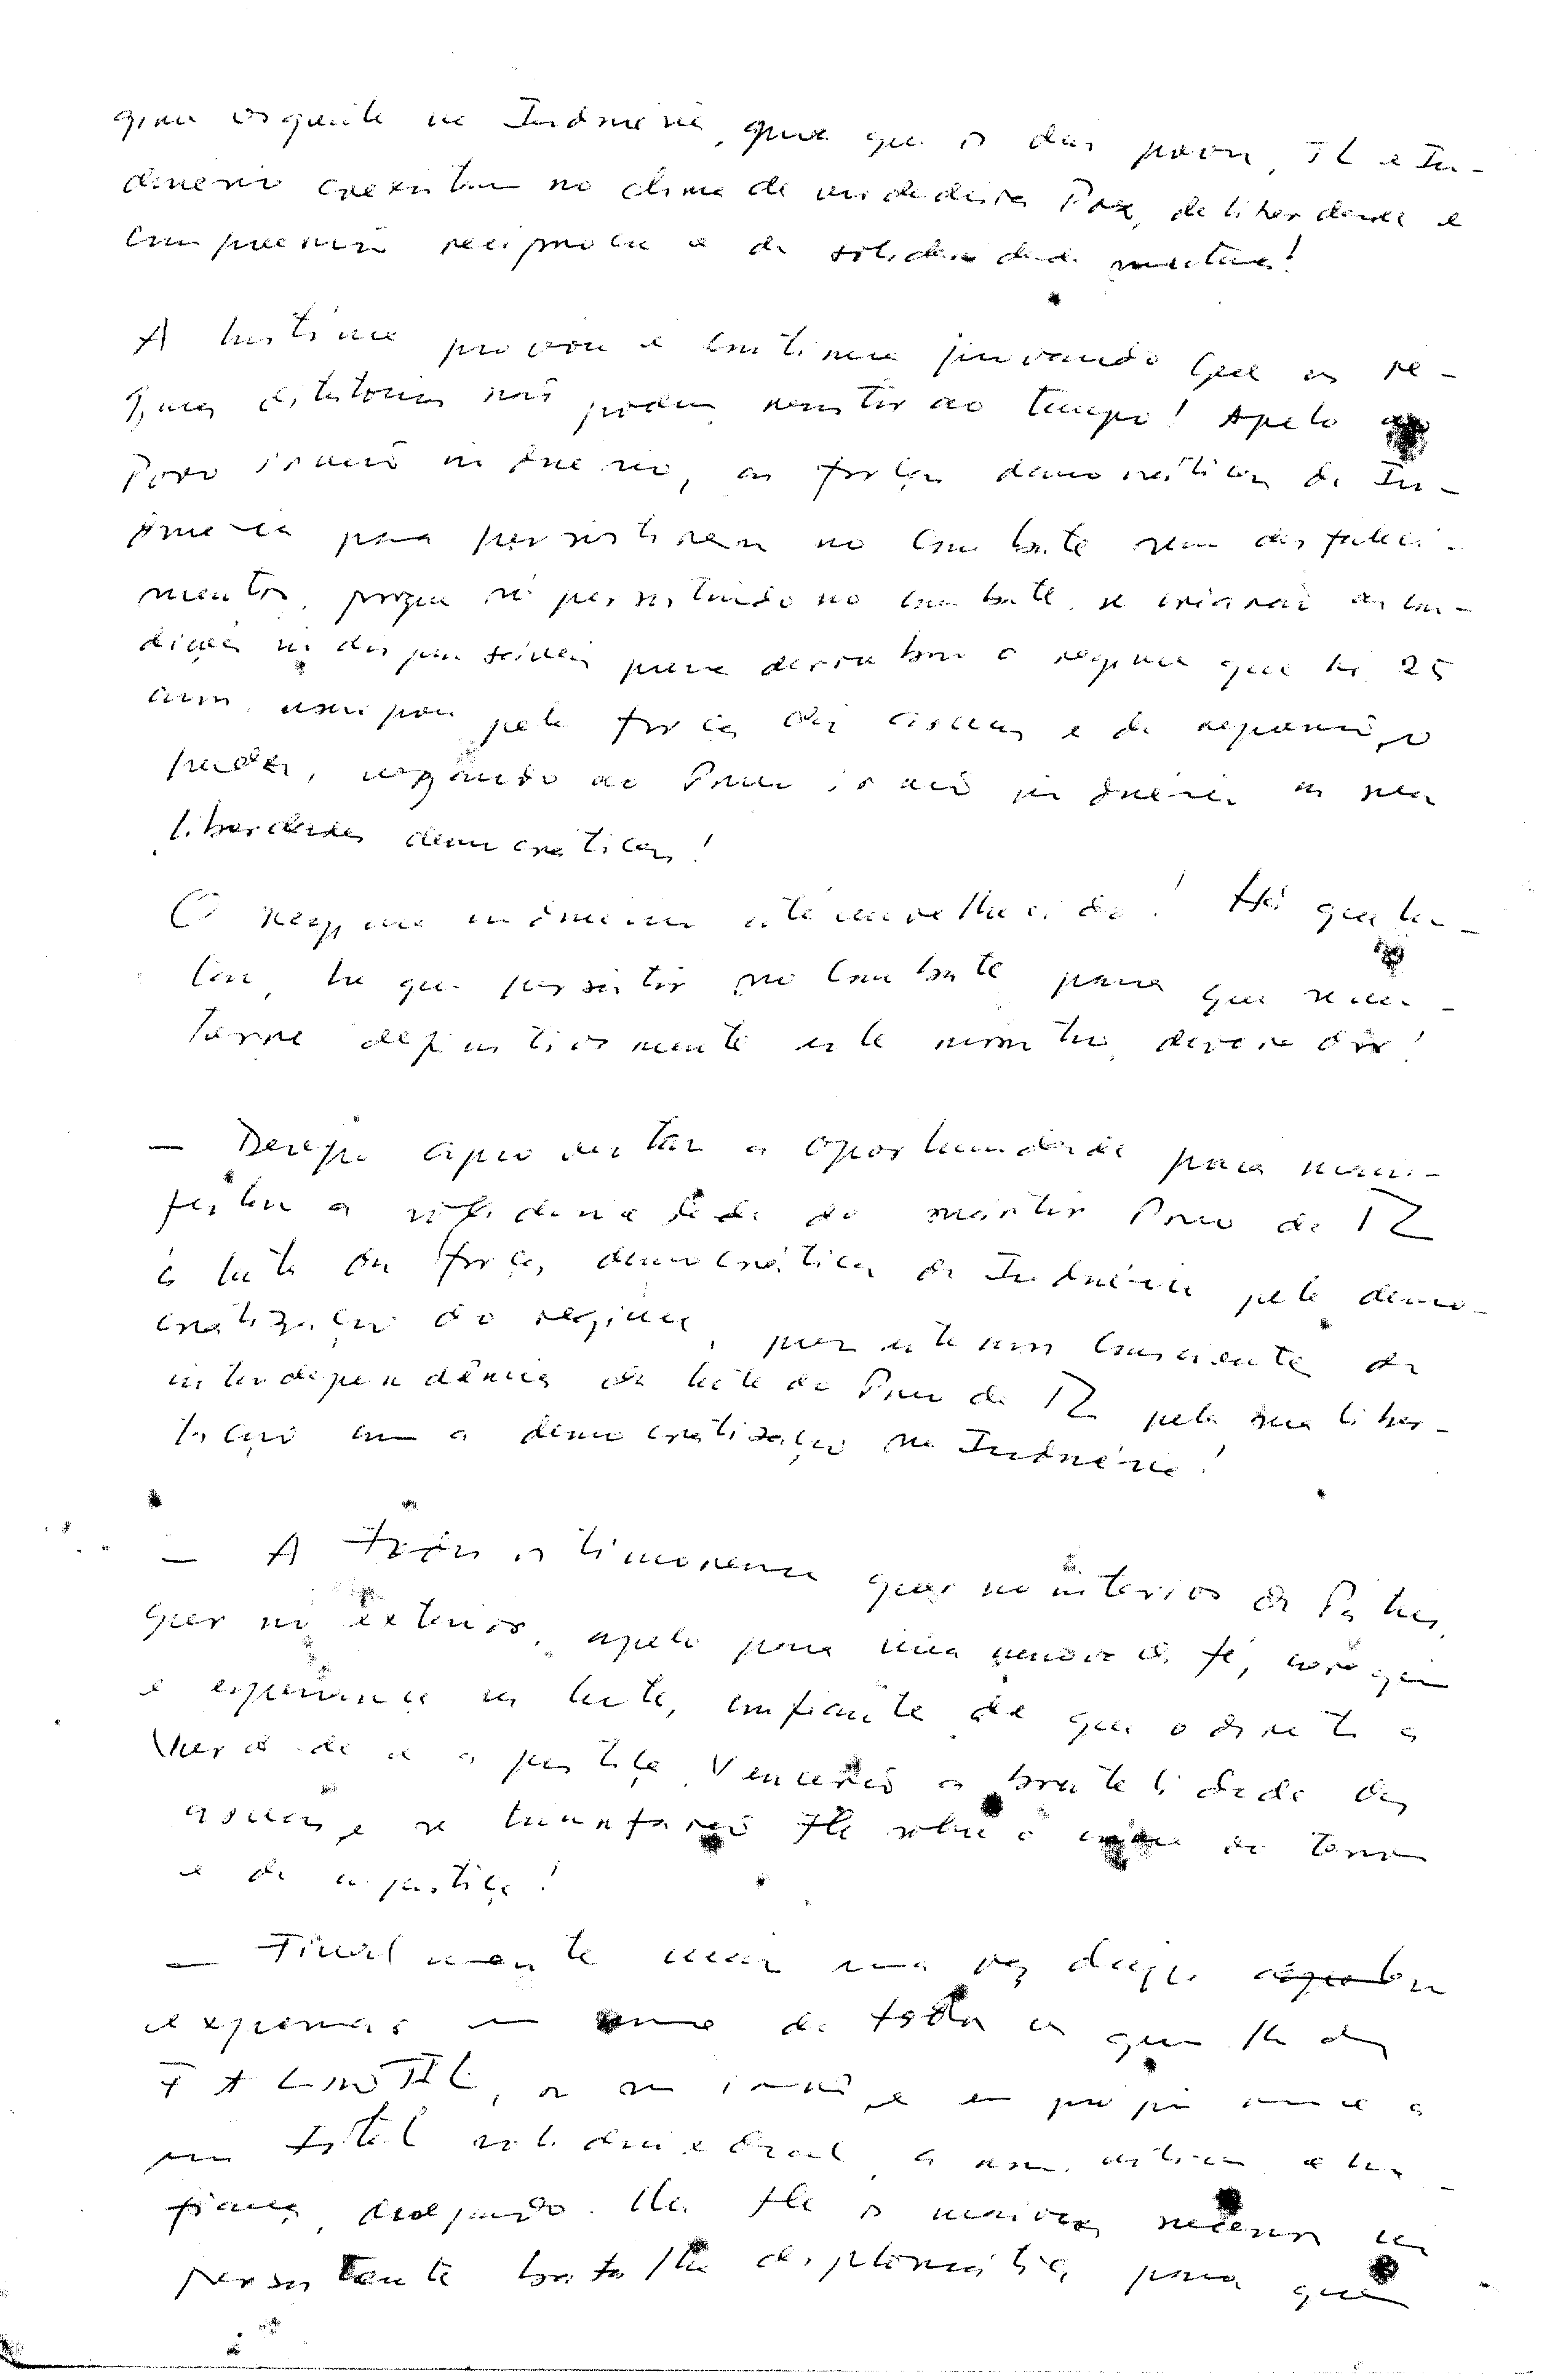 gime vigente na Indonésia, para que os dois povos, TL e In-
donésio coexistam no clima de verdadeira Paz, de liberdade e
compreensão recíproca e de solidariedade mútua!
A história provou e continua provando que os re-
gimes ditatoriais não podem resistir ao tempo! Apelo ao
Povo irmão indonésio, as forças democráticas da In-
donésia para persistirem no combate sem desfaleci-
mentos, porque só persistindo no combate, se criarão as con-
dições indispensáveis para derrubar o regime que há 25
anos, usurpou pela força das armas e da repressão, o
poder, negando ao Povo irmão indonésio as suas
liberdades democráticas!
O regime indonésio está envelhecido! Há que lu-
tar, há que persistir no combate para que se en-
terre definitivamente este monstro devorador!
— Desejo aproveitar a oportunidade para mani-
festar a solidariedade do mártir Povo de TL
à luta das forças democráticas da Indonésia pela demo-
cratização do regime, pois estamos consciente da
interdependência da luta do Povo de TL pela sua liber-
tação com a democratização na Indonésia!
— A todos os timorenses quer no interior da Pátria,
quer no exterior, apelo para uma renovada fé, coragem
e esperança na luta, confiante de que o direito a
Verdade e a justiça, vencerão a brutalidade das
armas, e se triunfarão sobre o crime do terror
e da injustiça!
— Finalmente mais uma vez desejo
expressar em nome de todos os guerrilheiros das
FALINTIL, os meus irmãos, e em próprio nome a
nossa total solidariedade, a nossa estima e con-
fiança, desejando-lhe os maiores sucessos na
persistente batalha diplomática para que